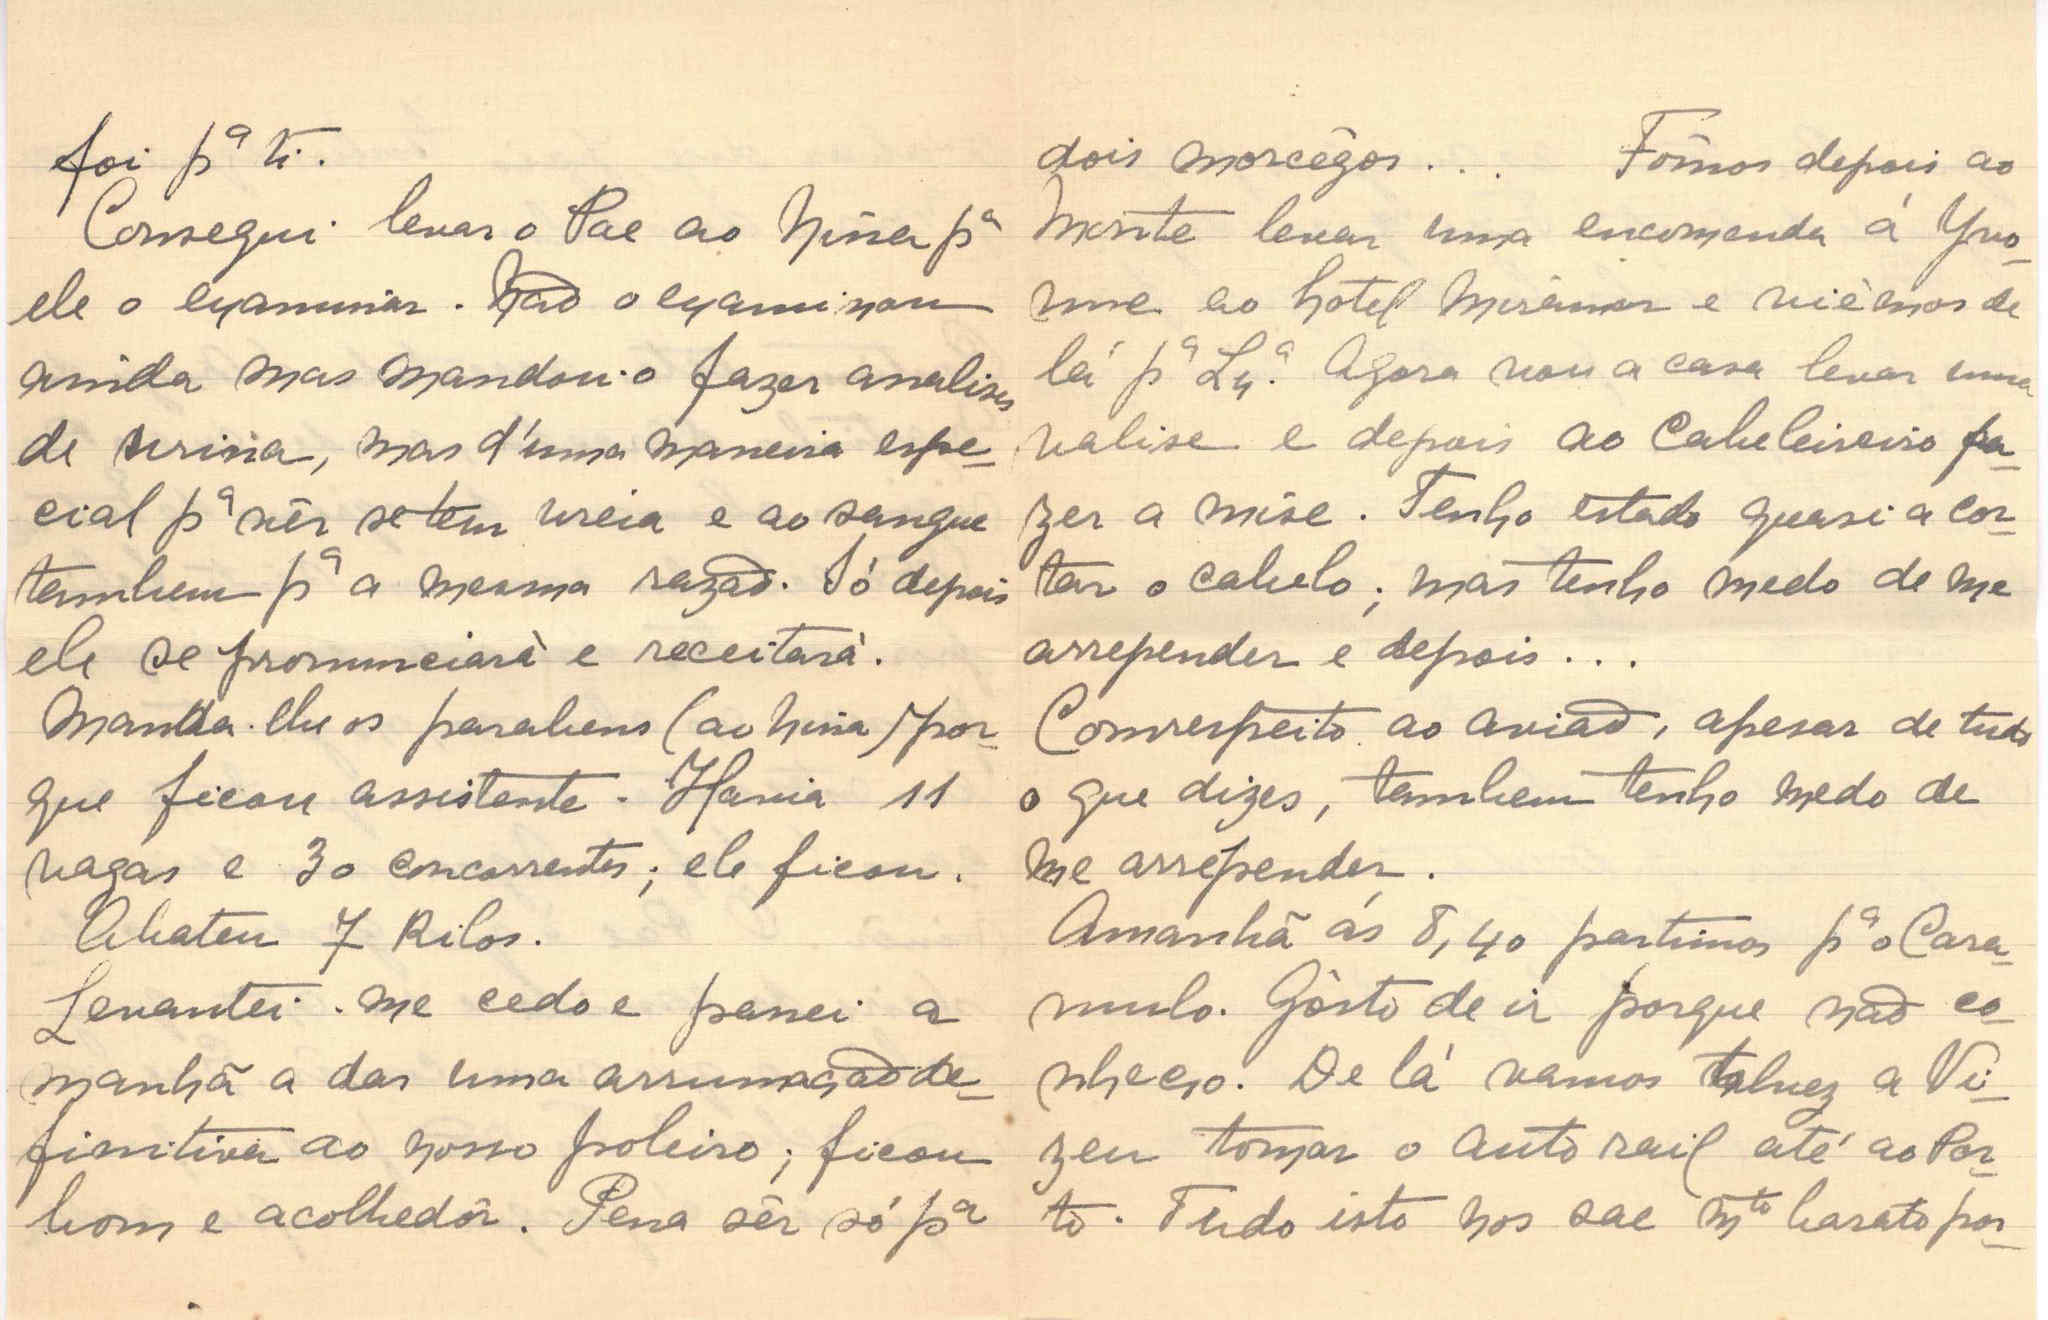 foi pª ti.
Consegui levar o Pae ao Nina pª
ele o examinar. Não o examinou
ainda mas mandou-o fazer analises
de urina, mas d'uma maneira espe-
cial pª vêr se tem ureia e ao sangue
tambem pª a mesma razão. Só depois
ele se pronunciará e receitará.
Manda-lhe os parabens (ao Nina) por-
que ficou assistente. Havia 11
vagas e 30 concorrentes; ele ficou.
Abateu 7 Kilos.
Levantei-me cedo e passei a
manhã a dar uma arrumação de-
finitiva ao nosso poleiro; ficou
bom e acolhedôr. Pena sêr só pª
dois morcêgos... Fômos depois ao
Monte levar uma encomenda á Yvo-
nne ao hotel Miramar e viémos de
lá pª Lxª. Agora vou a casa levar uma
valise e depois ao Cabeleireiro fa-
zer a mise. Tenho estado quasi a cor-
tar o cabelo; mas tenho medo de me
arrepender e depois...
Com respeito ao avião, apesar de tudo
o que dizes, tambem tenho medo de
me arrepender.
Amanhã ás 8,40 partimos pª o Cara-
mulo. Gósto de ir porque não co-
nheço. De lá vamos talvez a Vi-
zeu tomar o auto rail até ao Por-
to. Tudo isto nos sae mto barato por-